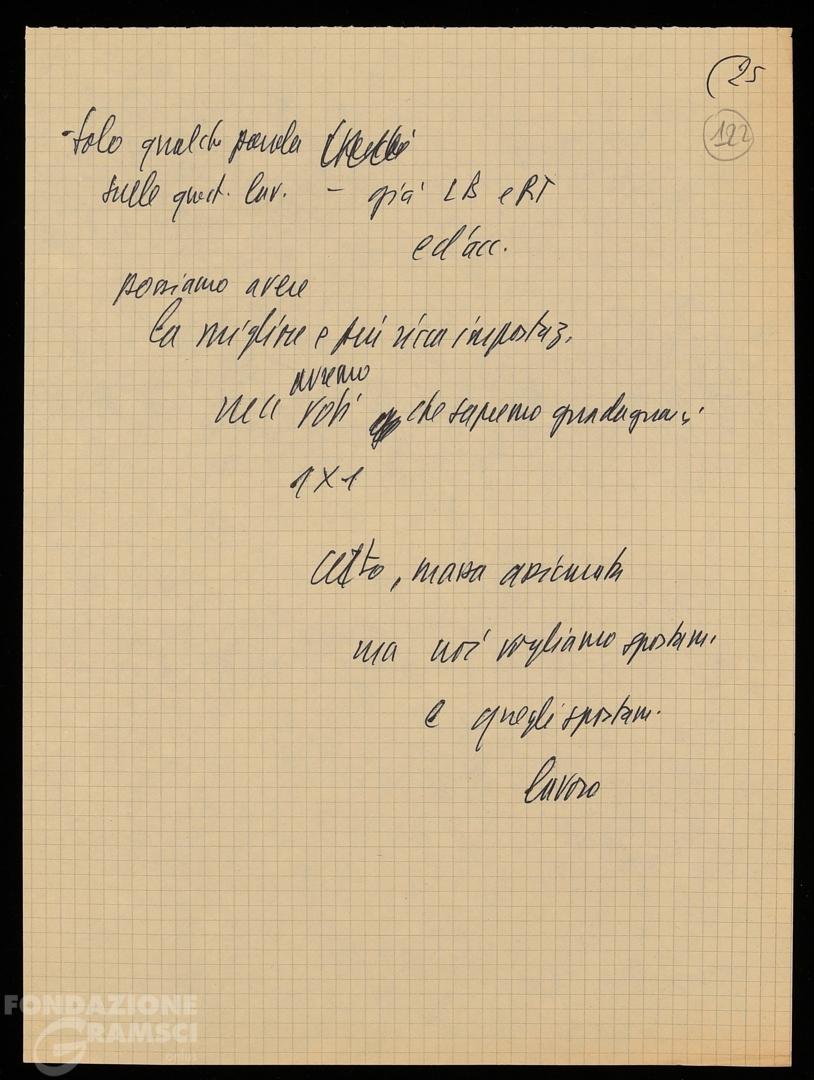 (25
122
Solo qualche parola
sulle quest. lav. - già LB e RT
e d'acc.
possiamo avere
la migliore e più ricca impostaz.
avremo
voti che sapremo guadagnarci
1 X 1
Certo, massa assicurata
ma noi vogliamo spostam.
e quegli spostam.
lavoro
FONDAZIONE
GRAMSCI
onlus